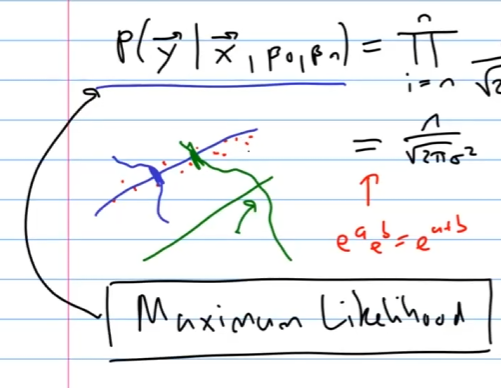 p(y⃗ | x⃗, β₀, βₙ) = ∏ⁿᵢ₌ₙ
= n/√2πσ²
eᵃeᵇ = eᵃ⁺ᵇ
Maximum Likelihood